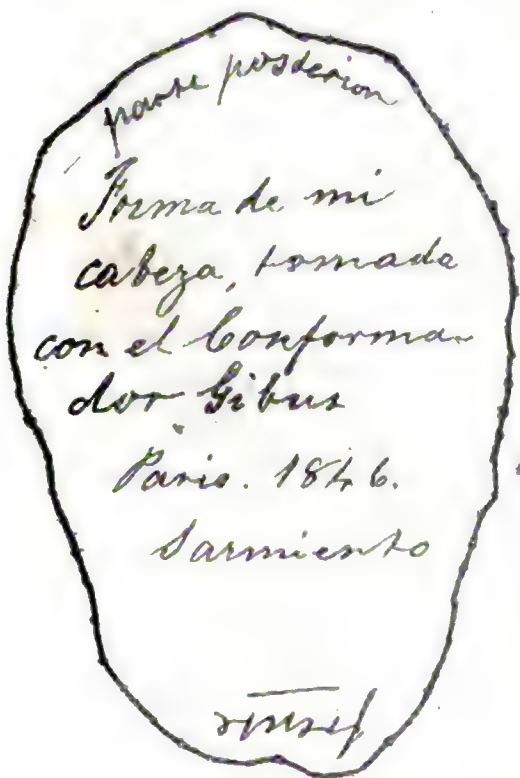 parte posterior
Forma de mi
cabeza, tomada
con el Conforma-
dor Gibus
Paris. 1846.
Sarmiento